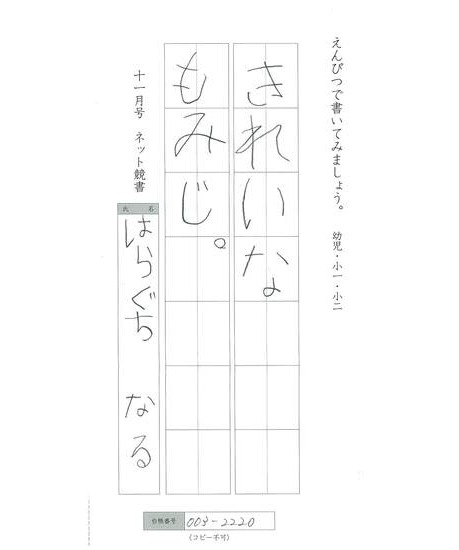 えんぴつで書いてみましょう。 幼児・小一・小二
きれいな
もみじ。
十一月号 ネット競書
氏名
はらぐち なる
合格番号 003-2220
(コピー不可)